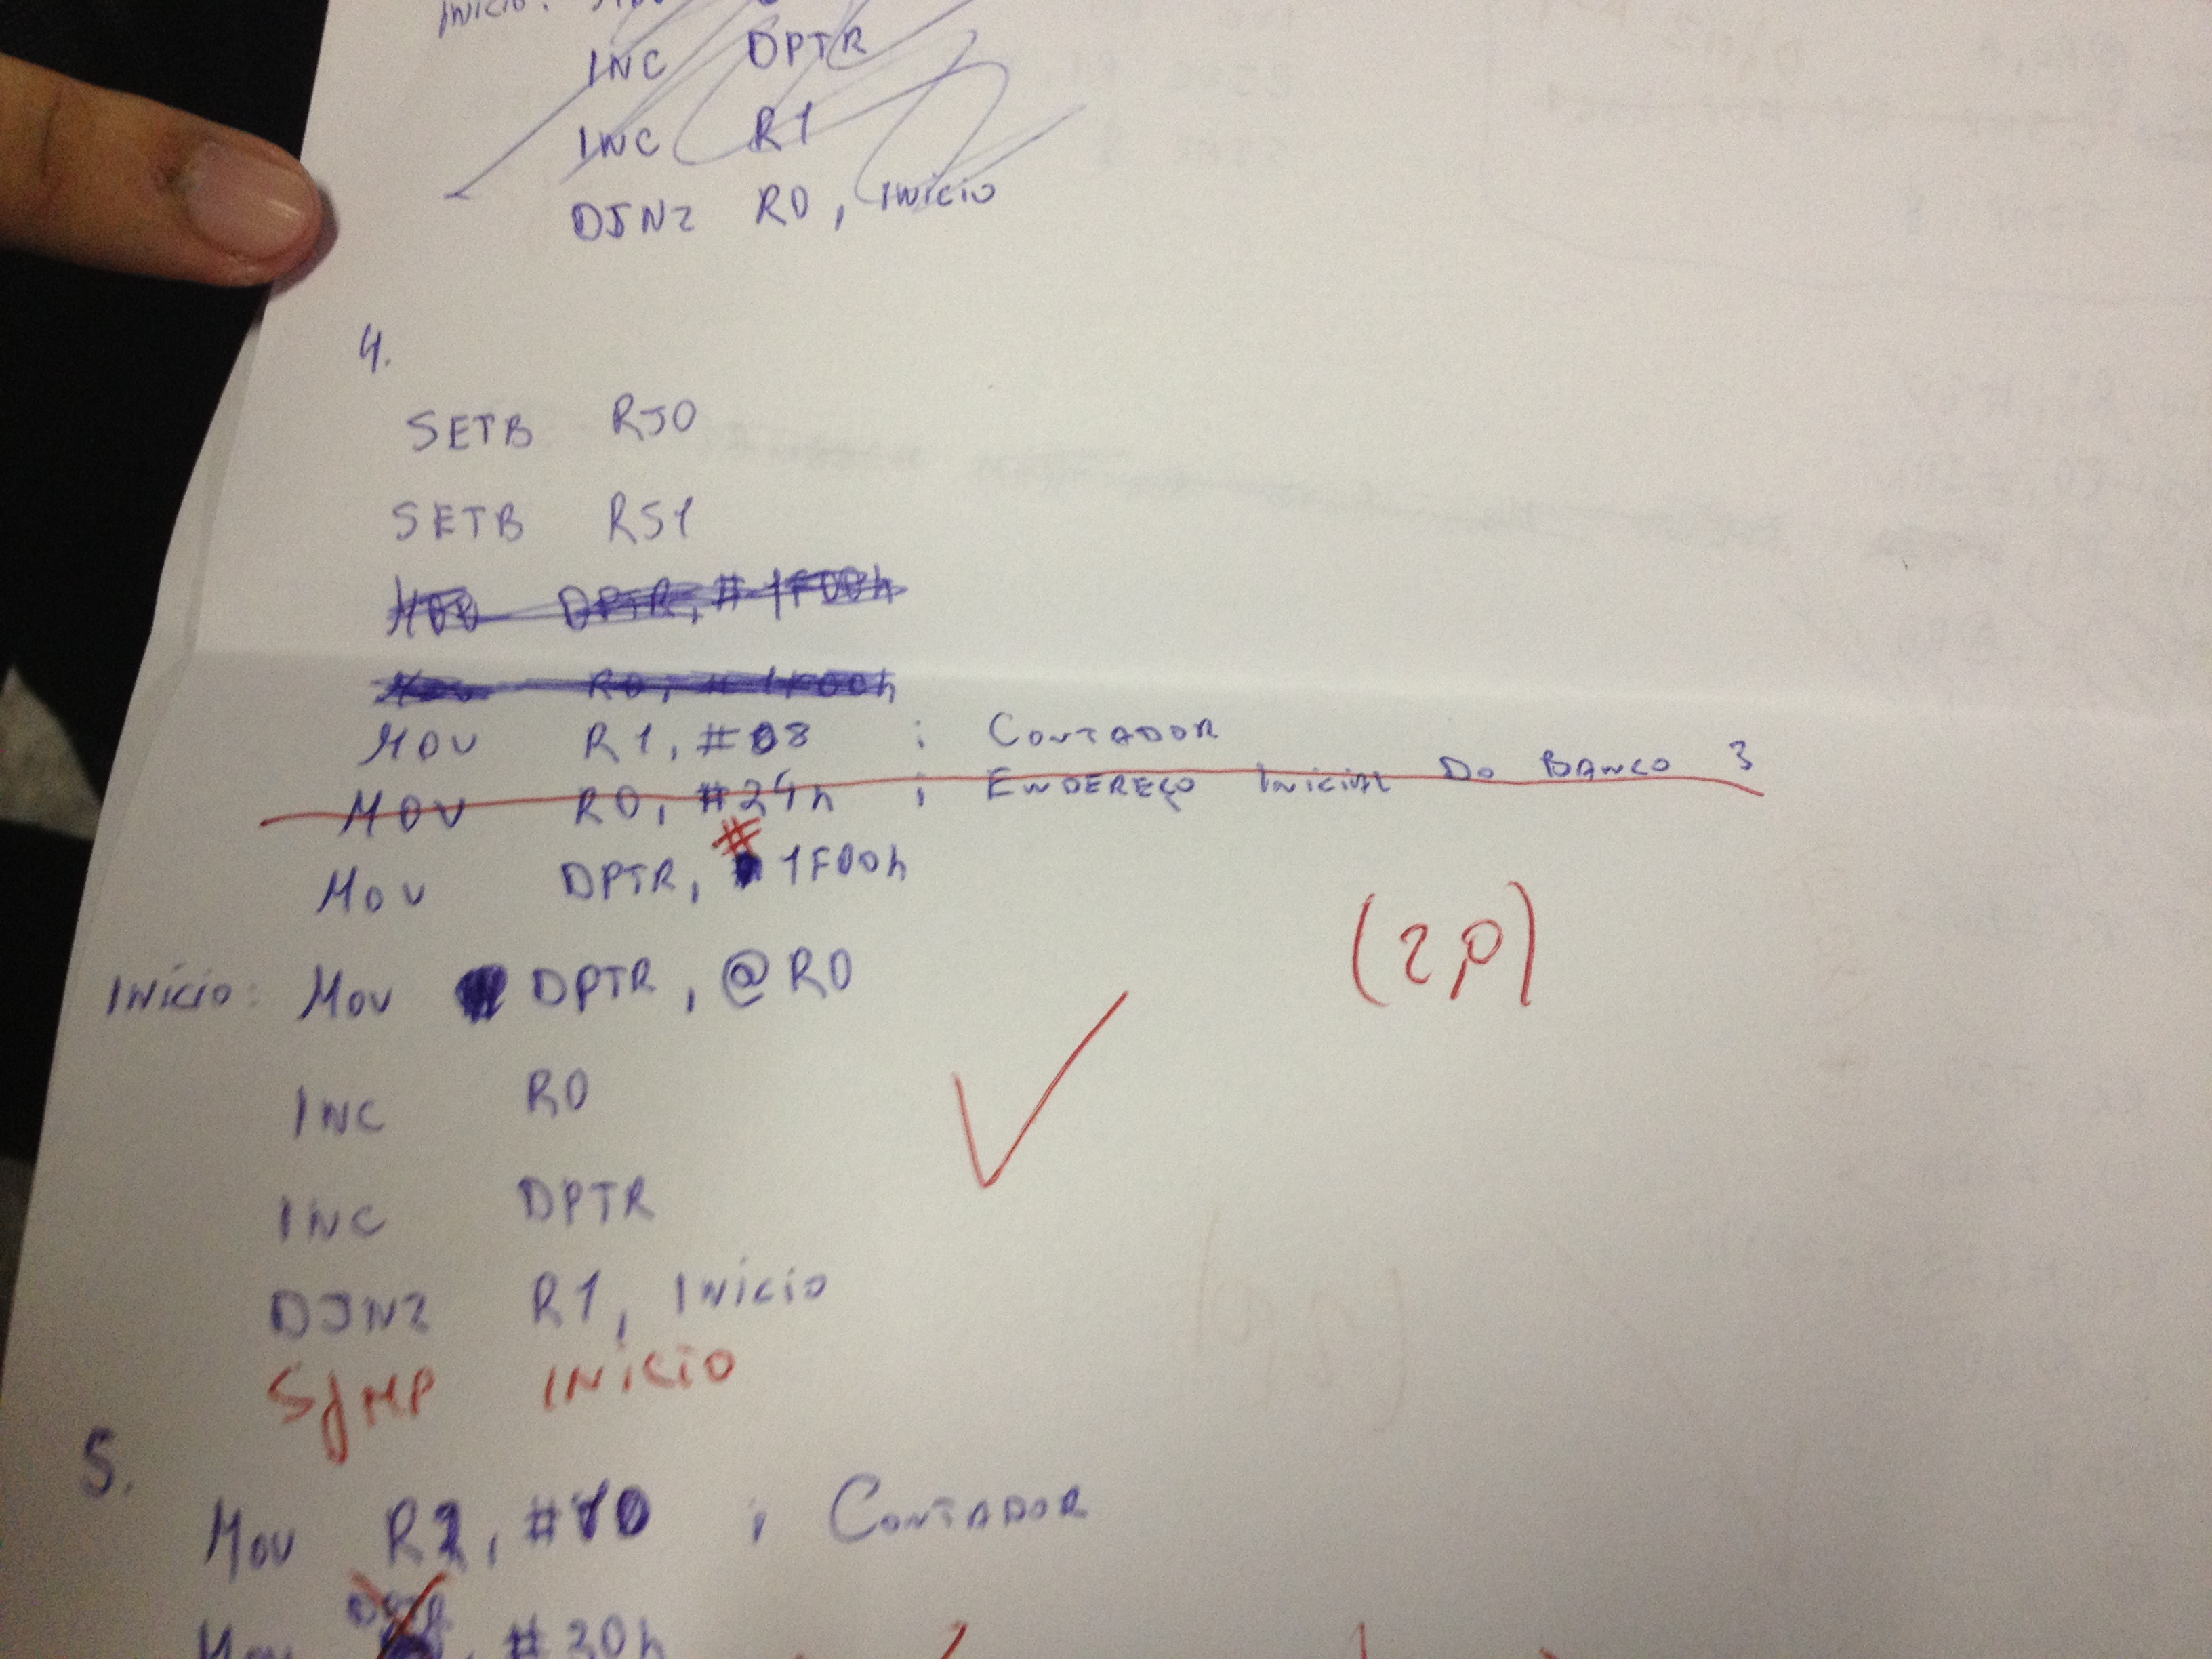 Início:
INC DPTR
INC R1
DJNZ R0, Início
4.
SETB RS0
SETB RS1
MOV DPTR, #1F00h
MOV R1, #08 ; CONTADOR
MOV R0, #24h ; ENDEREÇO INICIAL DO BANCO 3
MOV DPTR, #1F00h
Início: MOV DPTR, @R0
INC R0
INC DPTR
DJNZ R1, Início
SJMP INício
(2,0)
5.
MOV R2, #10 ; CONTADOR
MOV , #30h